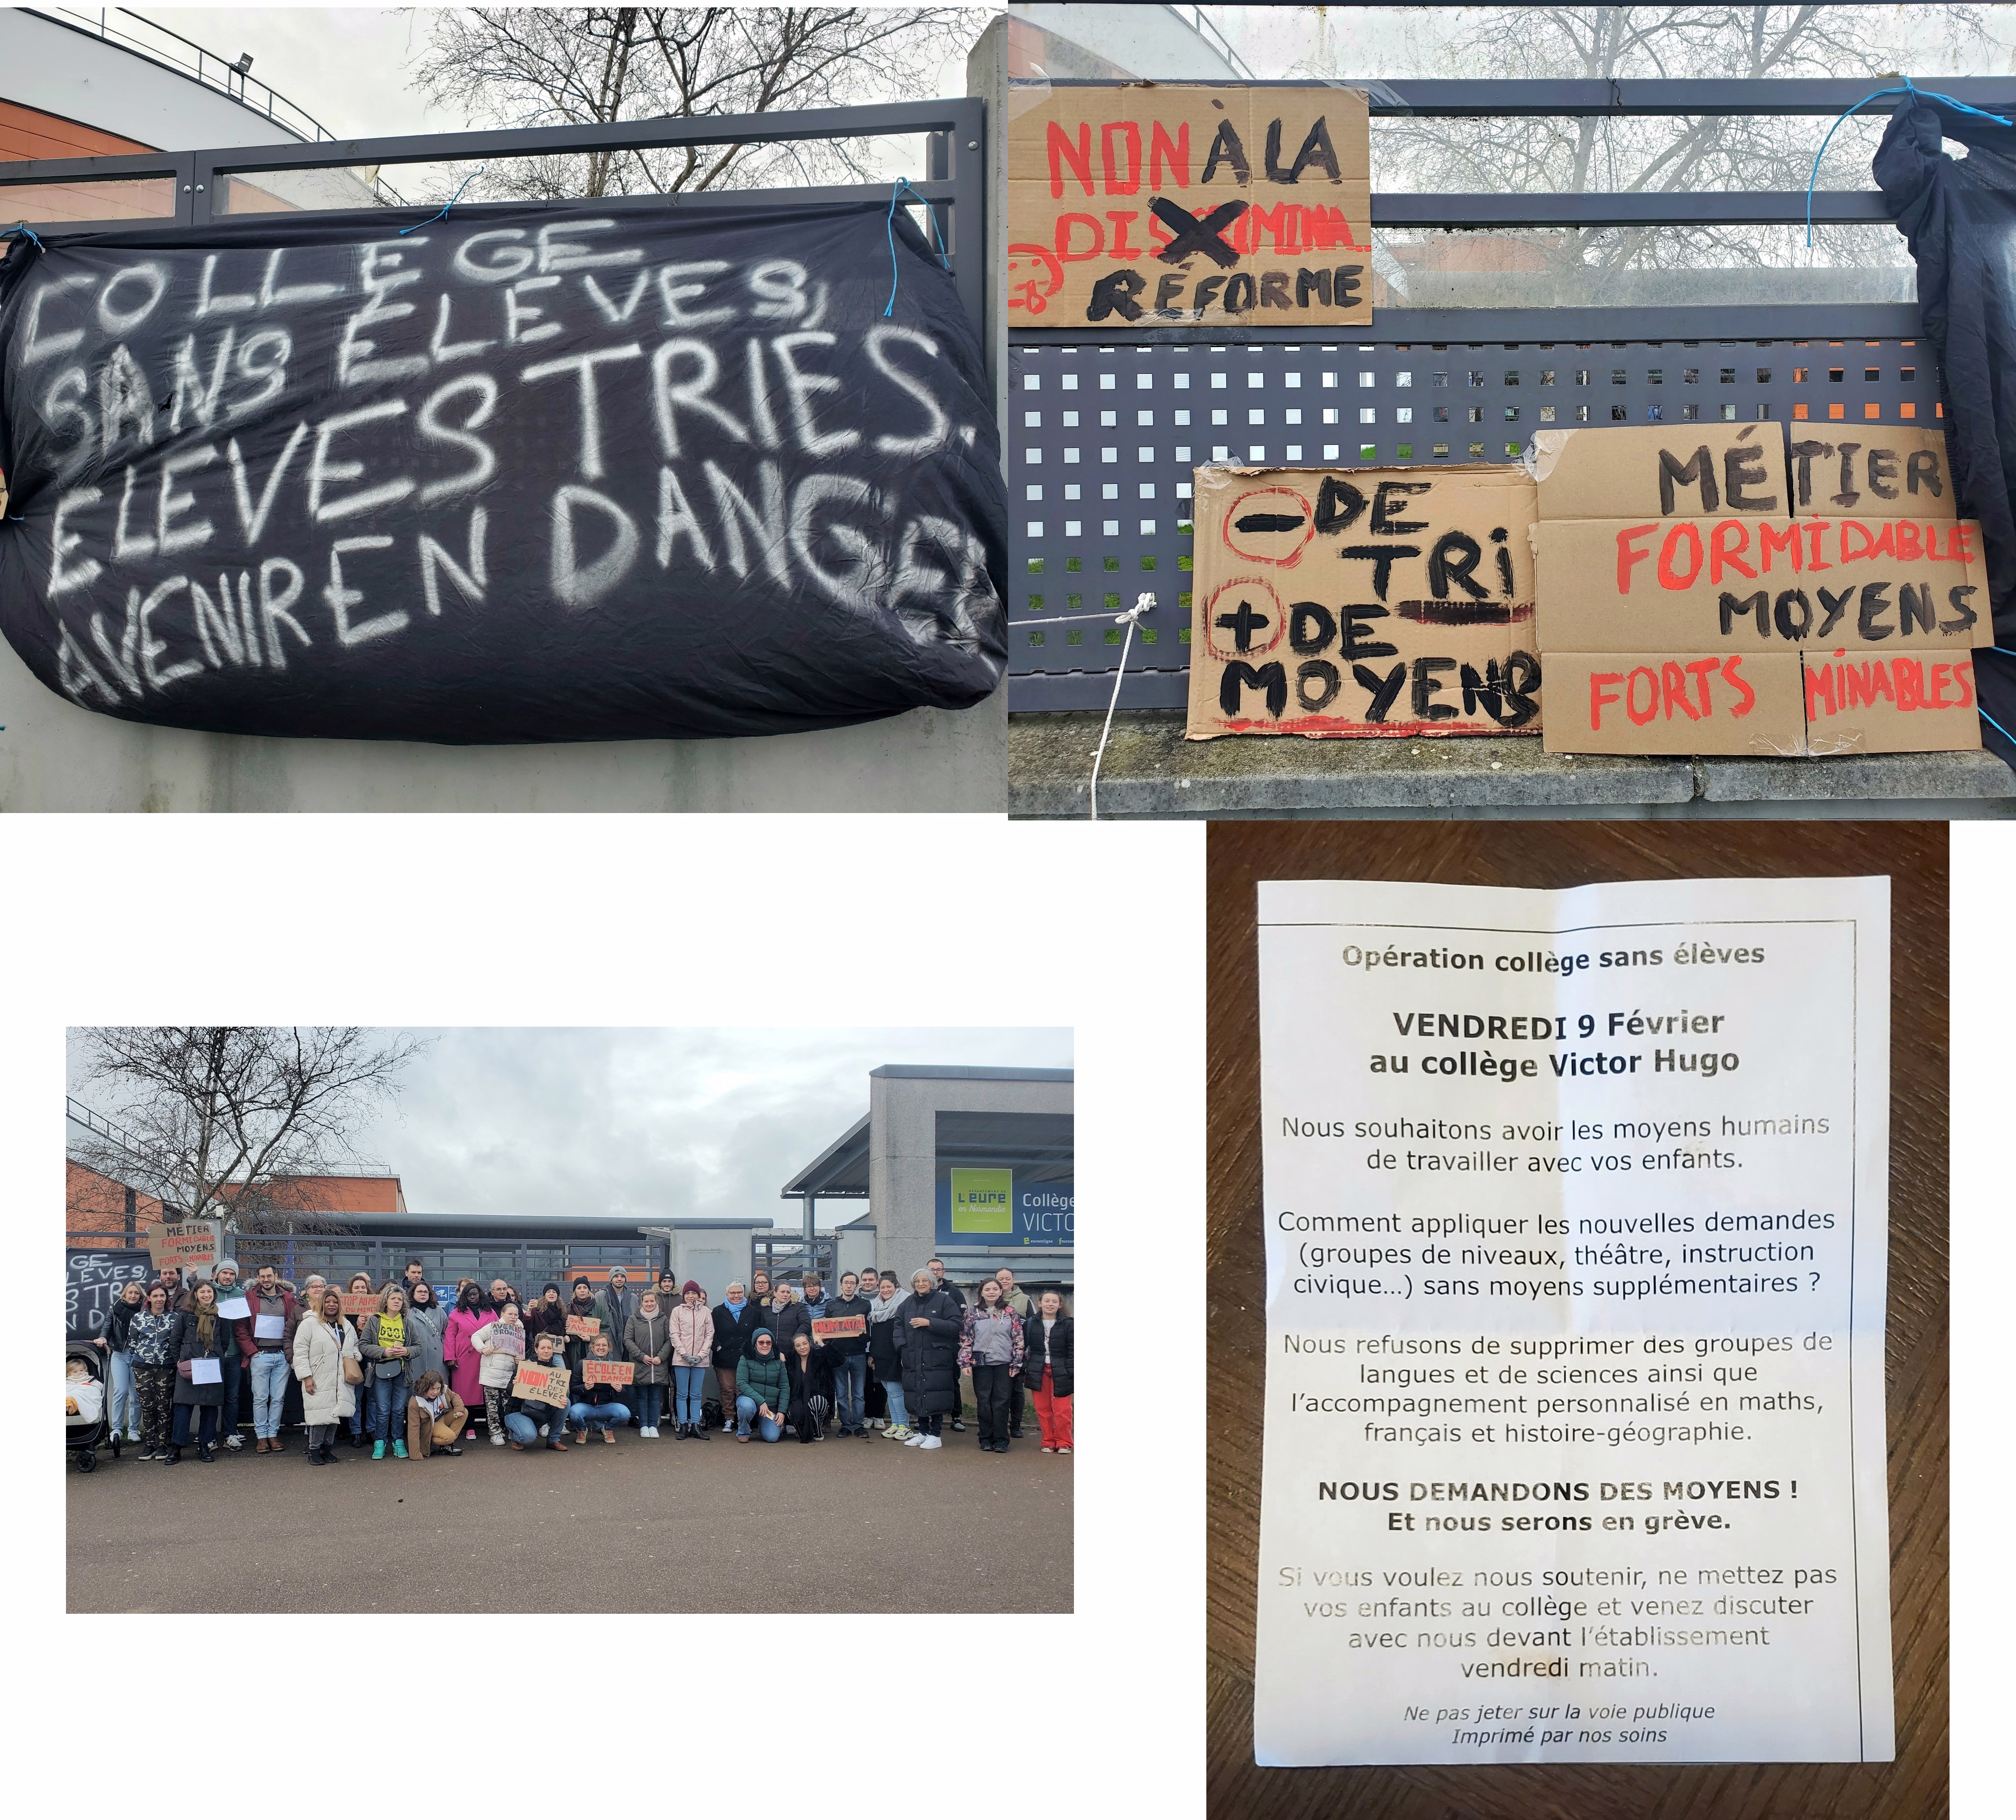 COLLEGE
SANS ÉLEVES,
ELEVES TRIES,
AVENIR EN DANGER
NON À LA
DISCRIMINA...
RÉFORME
- DE
TRI
+ DE
MOYENS
MÉTIER
FORMIDABLE
MOYENS
FORTS MINABLES
MÉTIER
FORMIDABLE
MOYENS
FORTS MINABLES
GE
LEVES,
S TR
N D
STOP AU
NON AU
TRI
DES
ÉLEVES
ÉCOLE EN
DANGER
AVENIR
L'EURE
en Normandie
Collège
VICTO
Opération collège sans élèves
VENDREDI 9 Février
au collège Victor Hugo
Nous souhaitons avoir les moyens humains
de travailler avec vos enfants.
Comment appliquer les nouvelles demandes
(groupes de niveaux, théâtre, instruction
civique...) sans moyens supplémentaires ?
Nous refusons de supprimer des groupes de
langues et de sciences ainsi que
l'accompagnement personnalisé en maths,
français et histoire-géographie.
NOUS DEMANDONS DES MOYENS !
Et nous serons en grève.
Si vous voulez nous soutenir, ne mettez pas
vos enfants au collège et venez discuter
avec nous devant l'établissement
vendredi matin.
Ne pas jeter sur la voie publique
Imprimé par nos soins